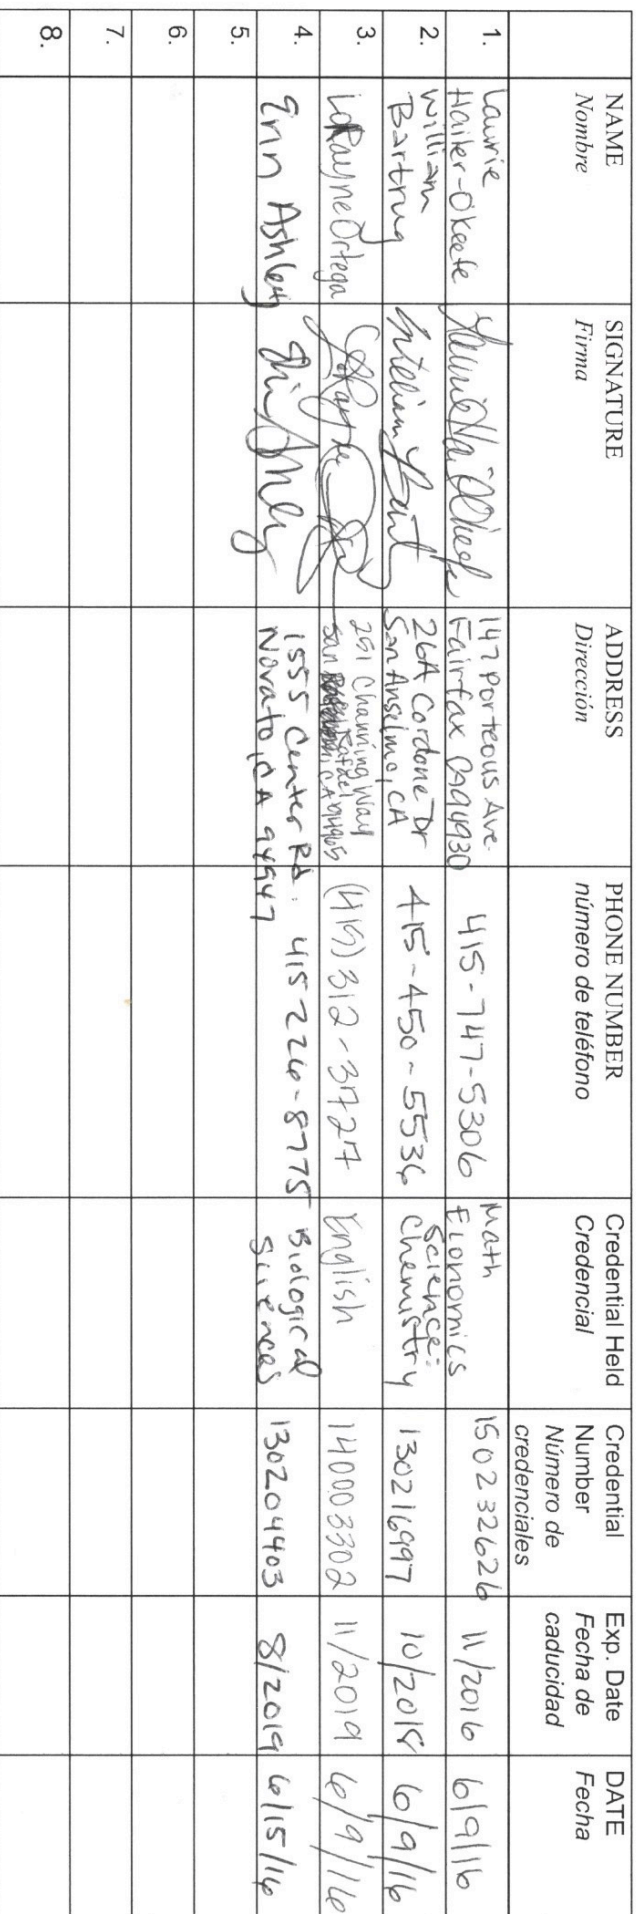 NAME
Nombre
SIGNATURE
Firma
ADDRESS
Dirección
PHONE NUMBER
número de teléfono
Credential Held
Credencial
Credential
Number
Número de
credenciales
Exp. Date
Fecha de
caducidad
DATE
Fecha
1.
Laurie
Hailer-O'Keefe
147 Porteous Ave.
Fairfax CA 94930
415-747-5306
Math
Economics
150232626
11/2016
6/9/16
2.
William
Bartrug
26A Cordone Dr
San Anselmo, CA
415-450-5536
Science:
Chemistry
130216997
10/2018
6/9/16
3.
LaRayne Ortega
251 Channing Way
San Rafael, CA 94903
(415) 312-3727
English
140003302
11/2019
6/9/16
4.
Erin Ashley
1555 Center Rd.
Novato, CA 94947
415 226-8775
Biological
Sciences
130204403
8/2019
6/15/16
5.
6.
7.
8.